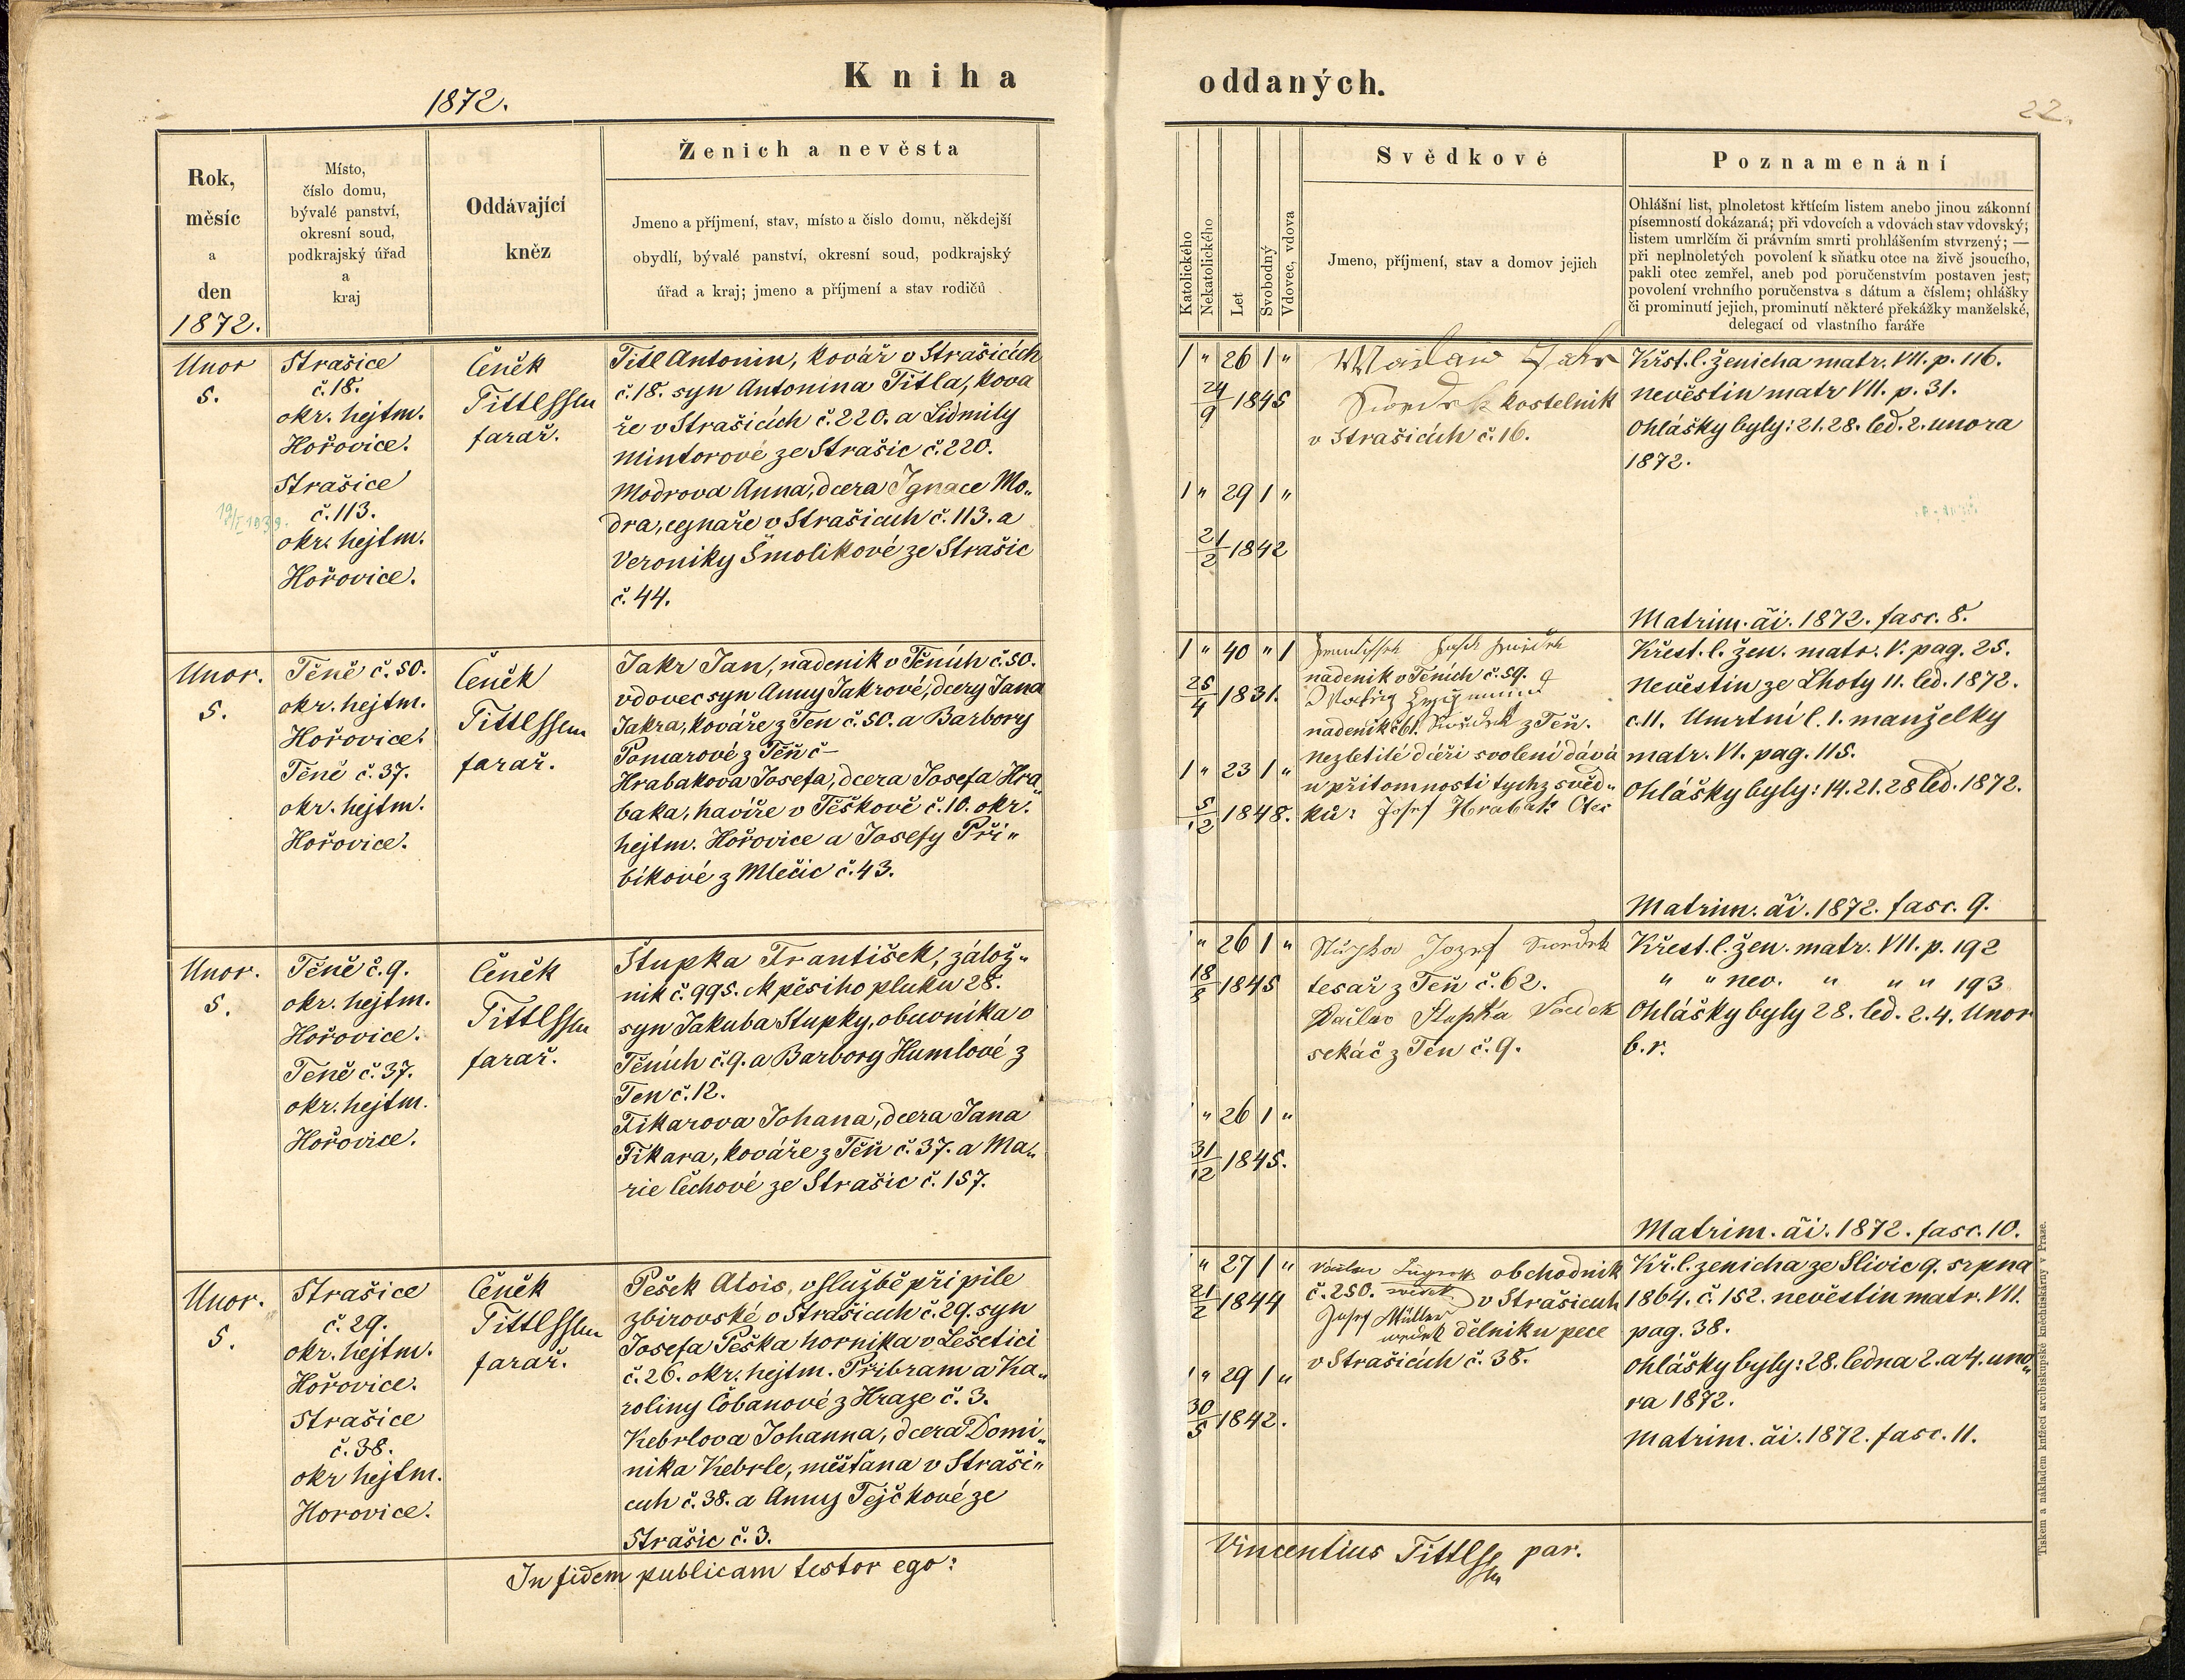 Kniha
1872.
Rok,
měsíc
a
den
1872.
Místo,
číslo domu,
bývalé panství,
okresní soud,
podkrajský úřad
a
kraj
Oddávající
kněz
Ženich a nevěsta
Jmeno a příjmení, stav, místo a číslo domu, někdejší
obydlí, bývalé panství, okresní soud, podkrajský
úřad a kraj; jmeno a příjmení a stav rodičů
Unor
5.
Strašice
č. 18.
okr. hejtm.
Hořovice.
Strašice
č. 113.
okr. hejtm.
Hořovice.
19/I 1939.
Čeněk
Tittl
farař.
Titl Antonin, kovář v Strašicích
č. 18. syn Antonina Titla, kova
ře v Strašicích č. 220. a Lidmily
Mintorové ze Strašic č. 220.
Modrova Anna, dcera Ignace Mo„
dra, cgnaře v Strašicích č. 113. a
Veroniky Šmolikové ze Strašic
č. 44.
Unor.
5.
Těně č. 50.
okr. hejtm.
Hořovice.
Těně č. 37.
okr. hejtm.
Hořovice.
Čeněk
Tittl
farař.
Jakr Jan, nadenik v Těních č. 50.
vdovec syn Anny Jakrové, dcery Jana
Jakra, kováře z Ten č. 50. a Barbory
Pomarové z Těň č –
Hrabakova Josefa, dcera Josefa Hra„
baka, havíře v Těškově č. 10. okr.
hejtm. Hořovice a Josefy Při„
bikové z Mlečic č. 43.
Unor.
5.
Těně č. 9.
okr. hejtm.
Hořovice.
Teně č. 37.
okr. hejtm.
Hořovice.
Čeněk
Tittl
farař.
Štupka František, zálož„
nik č. 995. M pěsiho pluku 28.
syn Jakuba Stupky, obuvníka v
Těních č. 9. a Barbory Humlové z
Ten č. 12.
Fikarova Johana, dcera Jana
Fikara, kováře z Těň č. 37. a Ma„
rie Čechové ze Strašic č. 157.
Unor.
5.
Strašice
č. 29.
okr. hejtm.
Hořovice.
Strašice
č. 38.
okr hejtm.
Horovice.
Čeněk
Tittl
farař.
Pešek Alois, v službě při pile
zbirovské v Strašicích č. 29. syn
Josefa Peška hornika v Lešetici
č. 26. okr. hejtm. Přibram a Ka„
roliny Čobanové z Hraze č. 3.
Kebrlova Johanna, dcera Domi„
nika Kebrle, měšťana v Straši„
cích č. 38. a Anny Tejčkové ze
Strašic č. 3.
In fidem publicam testor ego:
oddaných.
22.
Katolického
Nekatolického
Let
Svobodný
Vdovec, vdova
Svědkové
Jmeno, příjmení, stav a domov jejich
Poznamenání
Ohlášní list, plnoletost křtícím listem anebo jinou zákonní
písemností dokázaná; při vdovcích a vdovách stav vdovský;
listem umrlčím či právním smrti prohlášením stvrzený; —
při neplnoletých povolení k sňatku otce na živě jsoucího,
pakli otec zemřel, aneb pod poručenstvím postaven jest,
povolení vrchního poručenstva s dátum a číslem; ohlášky
či prominutí jejich, prominutí některé překážky manželské,
delegací od vlastního faráře
1 „ 26 1 „
24/9 1845
1 „ 29 1 „
21/2 1842
kostelnik
v Strašicích č. 16.
Křst. l. ženicha matr. VII. p. 116.
nevěstin matr VII. p. 31.
Ohlášky byly: 21. 28. led. 2. unora
1872.
Matrim. ăi. 1872. fasc. 8.
1 „ 40 „ 1
25/4 1831.
1 „ 23 1 „
5/12 1848.
nadenik v Teních č. 59.
nadenik č 61. z Teň.
Nezletilé dceři svolení dává
u přitomnosti tychz svěd„
ků: Josef Hrabak Otec
Křest. l. žen. matr. V. pag. 25.
Nevěstin ze Lhoty 11. led. 1872.
č. 11. Umrtní l. 1. manželky
matr. VI. pag. 115.
Ohlášky byly: 14. 21. 28 led. 1872.
Matrim. ăi. 1872. fasc. 9.
„ 26 1 „
18/8 1845
„ 26 1 „
31/12 1845.
Josef
tesař z Teň č. 62.
Stupka
sekáč z Ten č. 9.
Křest. l. žen. matr. VII. p. 192
„ „ nev. „ „ „ 193
Ohlášky byly 28. led. 2. 4. Unor
b. r.
Matrim. ăi. 1872. fasc. 10.
„ 27 1 „
21/2 1844
1 „ 29 1 „
30/5 1842.
obchodnik
č. 250. v Strašicích
Josef Müller
dělniku pece
v Strašicích č. 38.
Kř. l. zenicha ze Slivic 9. srpna
1864. č. 152. nevěstin matr. VII.
pag. 38.
Ohlášky byly: 28. ledna 2. a 4. uno„
ra 1872.
Matrim. ăi. 1872. fasc. 11.
Vincentius Tittl par.
Tiskem a nákladem knížecí arcibiskupské kněhtiskárny v Praze.